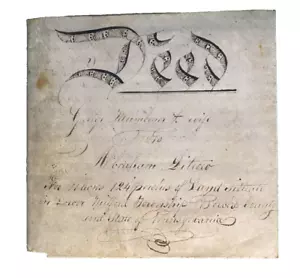 Deed
George & wife
To
Abraham
For 124 perches of Land Situate
in Lower Township Berks County
and State of Pennsylvania